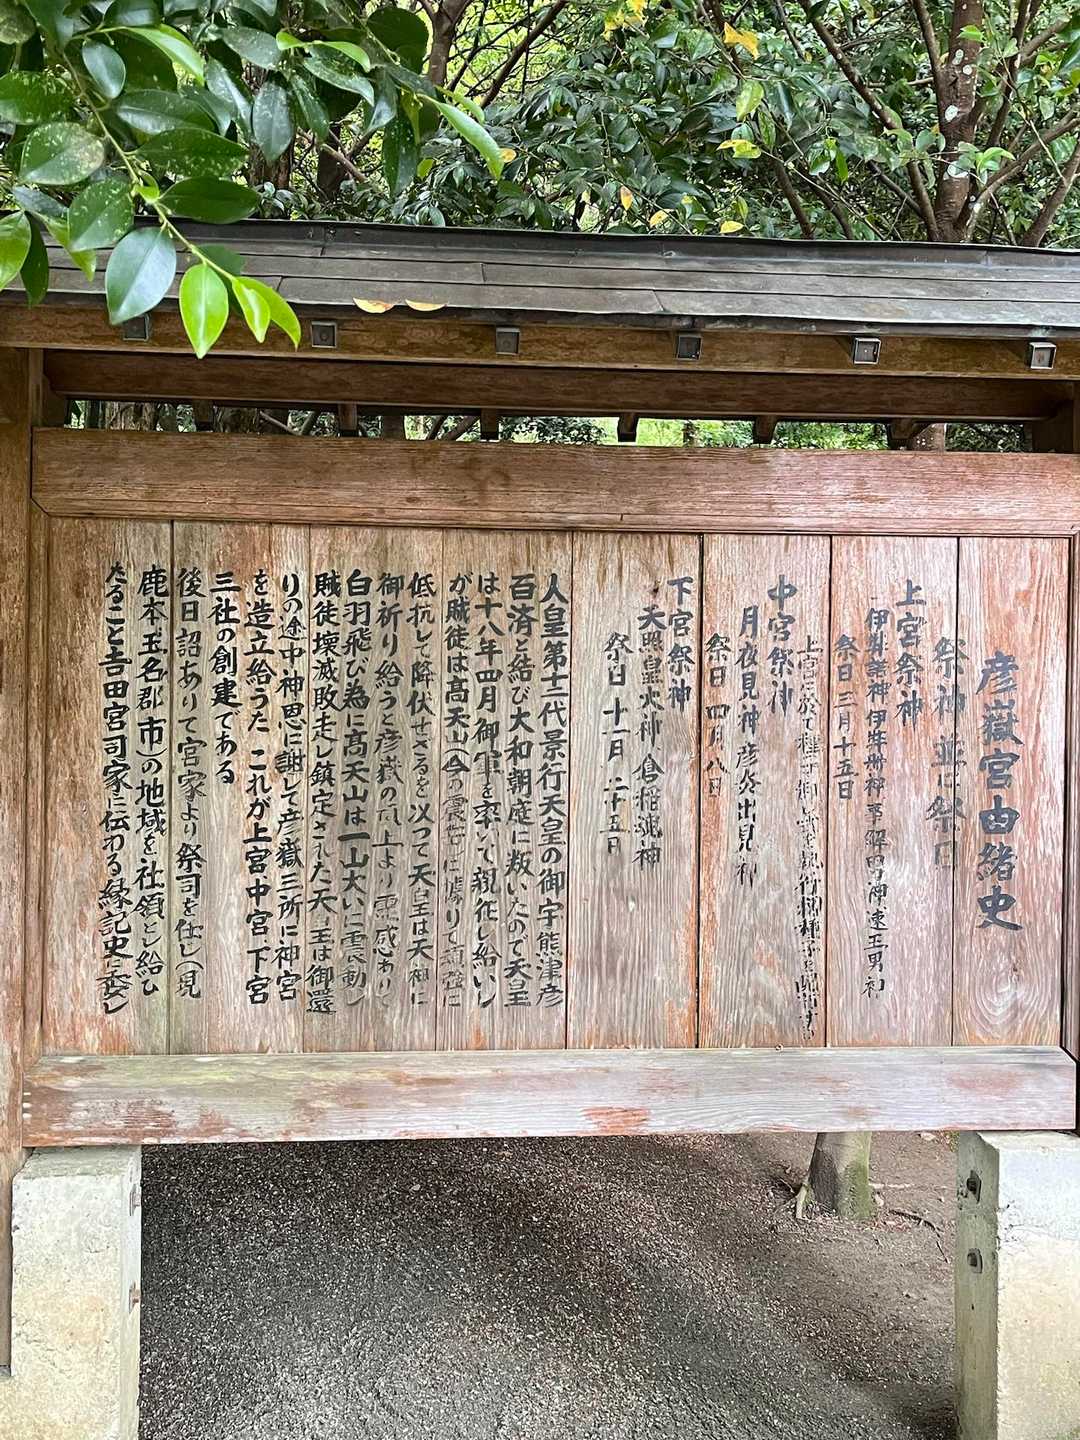 彦嶽宮由緒史
祭神並に祭日
上宮祭神
伊弉諾神伊弉册神事解男神速玉男神
祭日三月十五日
上宮に於て種
中宮祭神
月夜見神彦火火出見神
祭日四月八日
下宮祭神
天照皇大神倉稲魂神
祭日十一月二十五日
人皇第十二代景行天皇の御宇熊津彦
百済と結び大和朝庭に叛いたので天皇
は十八年四月御軍を率いて親征し給いし
が賊徒は高天山(今の震岳)に憑りて頑強に
低抗して降伏せざるを以つて天皇は天神に
御祈り給うと彦嶽の 上より霊感ありて
白羽飛び為に高天山は一山大いに震動し
賊徒壊滅敗走し鎮定された天皇は御還
りの途中神恩に謝して彦嶽三所に神宮
を造立給うた これが上宮中宮下宮
三社の創建である
後日詔ありて宮家より祭司を任し(見
鹿本玉名郡市)の地域を社領とし給ひ
たること吉田宮司家に伝わる縁記史に委し